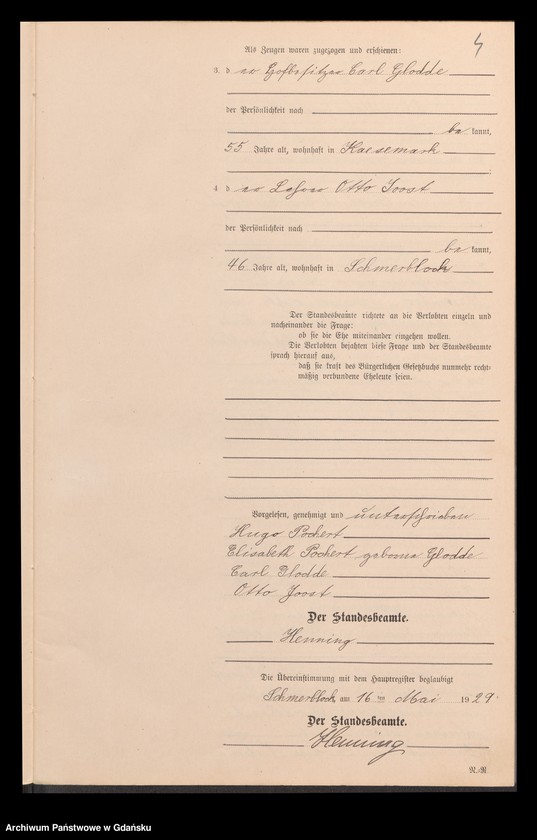 4
Als Zeugen waren zugezogen und erschienen:
3. der Hofbesitzer Carl Glodde
der Persönlichkeit nach
bekannt,
55 Jahre alt, wohnhaft in Kaesemark
4 der Lehrer Otto Joost
der Persönlichkeit nach
bekannt,
46 Jahre alt, wohnhaft in Schmerblock
Der Standesbeamte richtete an die Verlobten einzeln und
nacheinander die Frage:
ob sie die Ehe miteinander eingehen wollen.
Die Verlobten bejahten diese Frage und der Standesbeamte
sprach hierauf aus,
daß sie kraft des Bürgerlichen Gesetzbuchs nunmehr recht-
mäßig verbundene Eheleute seien.
Vorgelesen, genehmigt und unterschrieben
Hugo Pochert
Elisabeth Pochert geborene Glodde
Carl Glodde
Otto Joost
Der Standesbeamte.
Henning
Die Übereinstimmung mit dem Hauptregister beglaubigt
Schmerblock, am 16ten Mai 1929.
Der Standesbeamte.
Henning
Archiwum Państwowe w Gdańsku